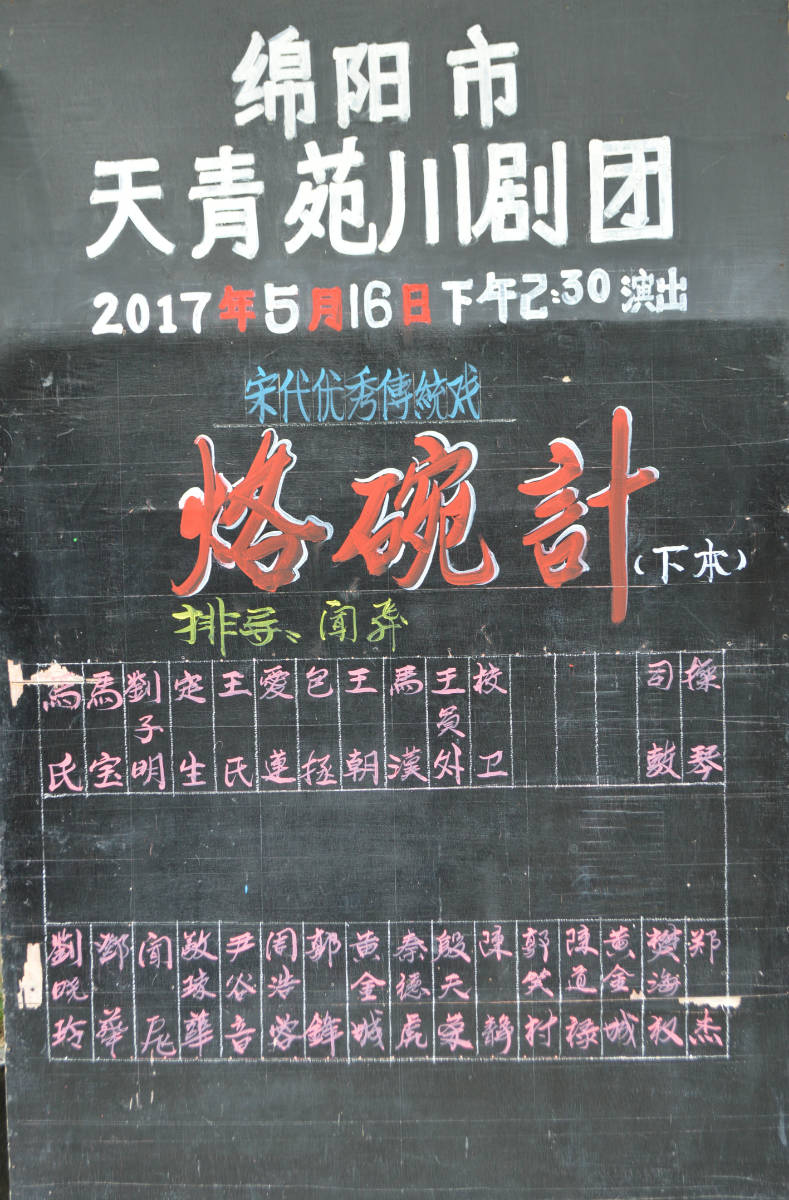 绵阳市
天青苑川剧团
2017年5月16日下午2:30演出
宋代优秀傳統戏
烙碗計(下本)
排导、闻
馬氏
馬宝
劉子明
定生
王氏
愛蓮
包拯
王朝
馬漢
王员外
校卫
司鼓
操琴
劉晓玲
鄧華
闻
敬琼華
尹谷音
周浩蓉
郭鋒
黄金城
秦德虎
殷天
陳靜
郭
陳道禄
黄金城
樊海权
郑杰